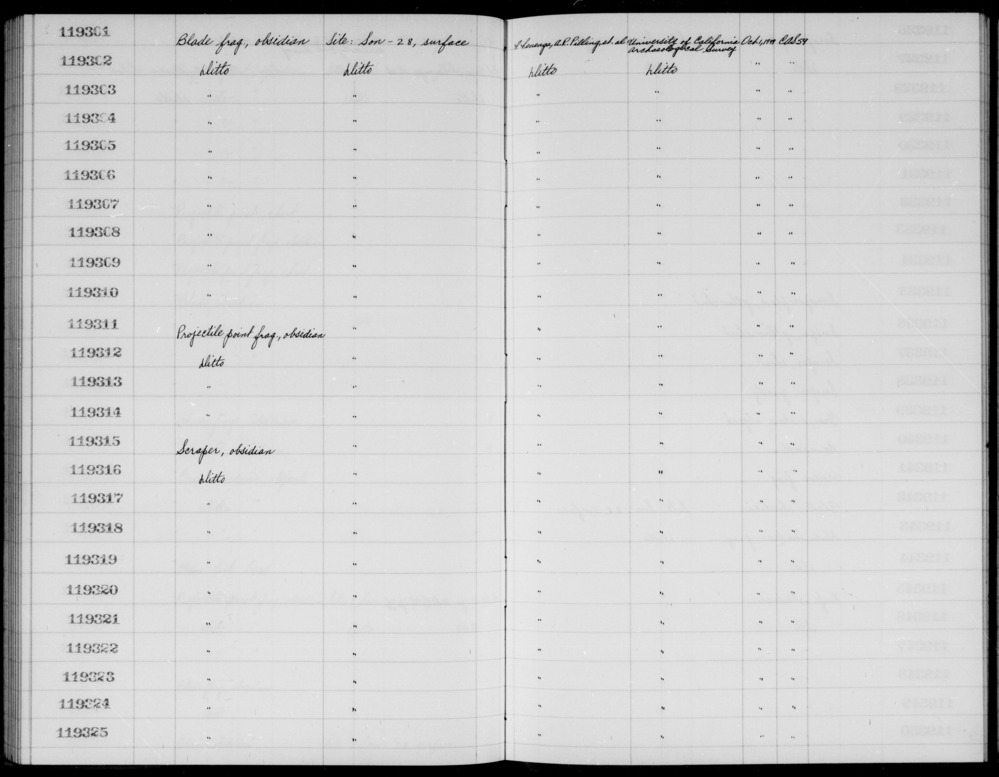 119301 Blade frag, obsidian Site: Son-28, surface A.R. Pilling et al University of California Archaeological Survey Oct 1, 1949
119302 Ditto Ditto Ditto Ditto " "
119303 " " " " " "
119304 " " " " " "
119305 " " " " " "
119306 " " " " " "
119307 " " " " " "
119308 " " " " " "
119309 " " " " " "
119310 " " " " " "
119311 Projectile point frag., obsidian " " " " "
119312 Ditto " " " " "
119313 " " " " " "
119314 " " " " " "
119315 Scraper, obsidian " " " " "
119316 Ditto " " " " "
119317 " " " " " "
119318 " " " " " "
119319 " " " " " "
119320 " " " " " "
119321 " " " " " "
119322 " " " " " "
119323 " " " " " "
119324 " " " " " "
119325 " " " " " "